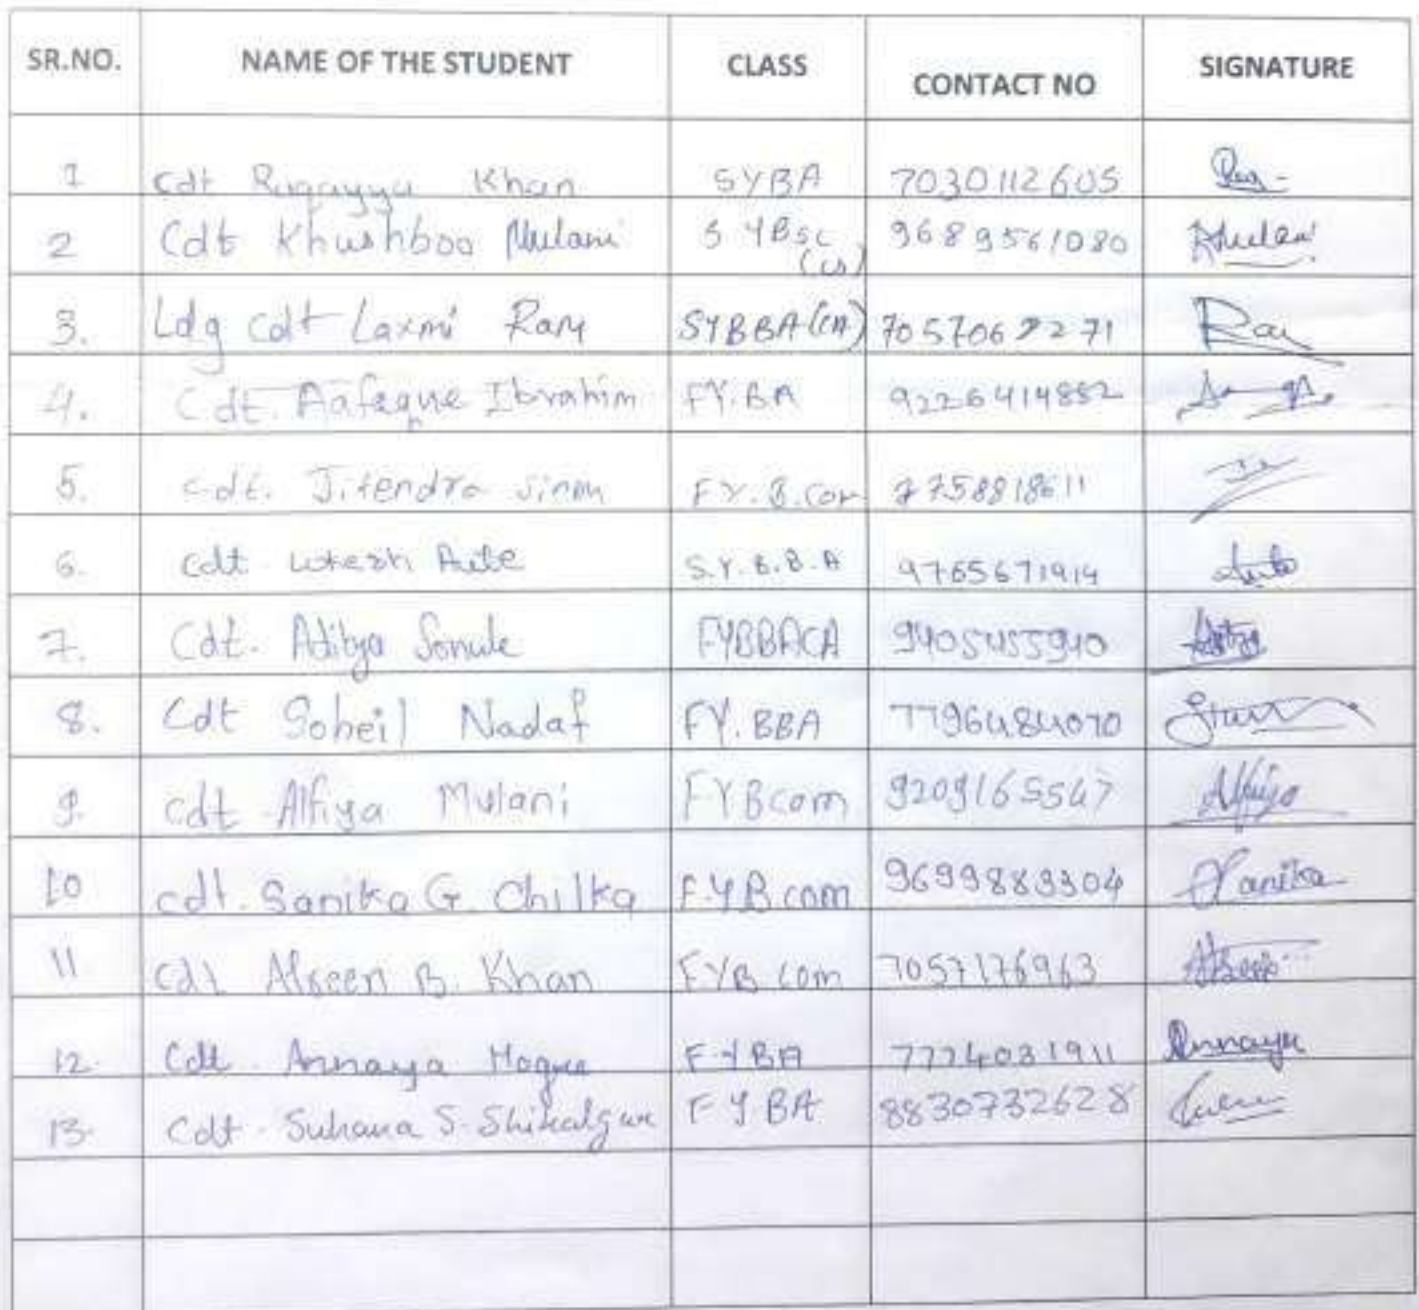 SR.NO. NAME OF THE STUDENT CLASS CONTACT NO SIGNATURE
1 Cdt Ruqayya Khan SYBA 7030112605
2 Cdt Khushboo Mulani S YBsc (cs) 9689561080 KMulani
3. Ldg Cdt Laxmi Ram SYBBA(CA) 7057062271
4. Cdt. Aafaque Ibrahim FY.BA 9226414852
5. Cdt. Jitendra FY.B.Com 7758818611
6. Cdt Aute S.Y.B.B.A 9765671914 Aute
7. Cdt. Aditya Sonule FYBBACA 9405455940
8. Cdt Soheil Nadaf FY.BBA 7796484070
9. Cdt Alfiya Mulani FYBcom 9209165567 Alfiya
10 cdt. Sanika G. Chilka F.Y.B.com 9699889304 Sanika
11 Cdt Afseen B. Khan FYB com 7057176963
12. Cdt. Annaya Hogue F-YBA 7774031911 Annaya
13. Cdt. Suhana S. Shikalgar F Y BA 8830732628